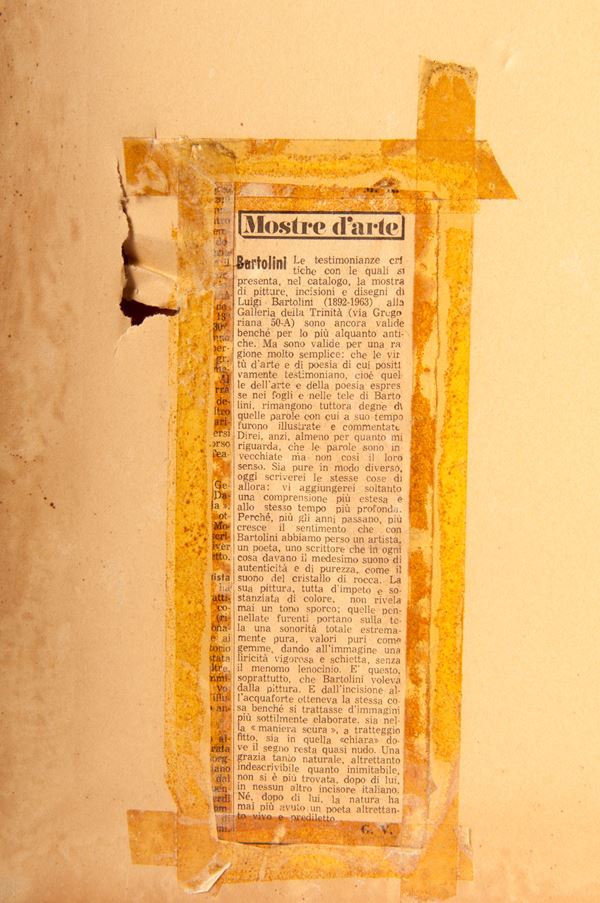 Mostre d'arte
Bartolini Le testimonianze cri
tiche con le quali si
presenta, nel catalogo, la mostra
di pitture, incisioni e disegni di
Luigi Bartolini (1892-1963) alla
Galleria della Trinità (via Grego
riana 50-A) sono ancora valide
benché per lo più alquanto anti-
che. Ma sono valide per una ra
gione molto semplice: che le vir
tù d'arte e di poesia di cui positi
vamente testimoniano, cioé quel
le dell'arte e della poesia espres
se nei fogli e nelle tele di Barto
lini, rimangono tuttora degne di
quelle parole con cui a suo tempo
furono illustrate e commentate
Direi, anzi, almeno per quanto mi
riguarda, che le parole sono in
vecchiate ma non così il loro
senso. Sia pure in modo diverso,
oggi scriverei le stesse cose di
allora: vi aggiungerei soltanto
una comprensione più estesa e
allo stesso tempo più profonda.
Perché, più gli anni passano, più
cresce il sentimento che con
Bartolini abbiamo perso un artista,
un poeta, uno scrittore che in ogni
cosa davano il medesimo suono di
autenticità e di purezza, come il
suono del cristallo di rocca. La
sua pittura, tutta d'impeto e so-
stanziata di colore, non rivela
mai un tono sporco; quelle pen-
nellate furenti portano sulla te-
la una sonorità totale estrema-
mente pura, valori puri come
gemme, dando all'immagine una
liricità vigorosa e schietta, senza
il menomo lenocinio. E' questo,
soprattutto, che Bartolini voleva
dalla pittura. E dall'incisione al-
l'acquaforte otteneva la stessa co-
sa benché si trattasse d'immagini
più sottilmente elaborate, sia nel-
la «maniera scura», a tratteggio
fitto, sia in quella «chiara» do-
ve il segno resta quasi nudo. Una
grazia tanto naturale, altrettanto
indescrivibile quanto inimitabile,
non si è più trovata, dopo di lui,
in nessun altro incisore italiano.
Né, dopo di lui, la natura ha
mai più avuto un poeta altrettan-
to vivo e prediletto
G. V.